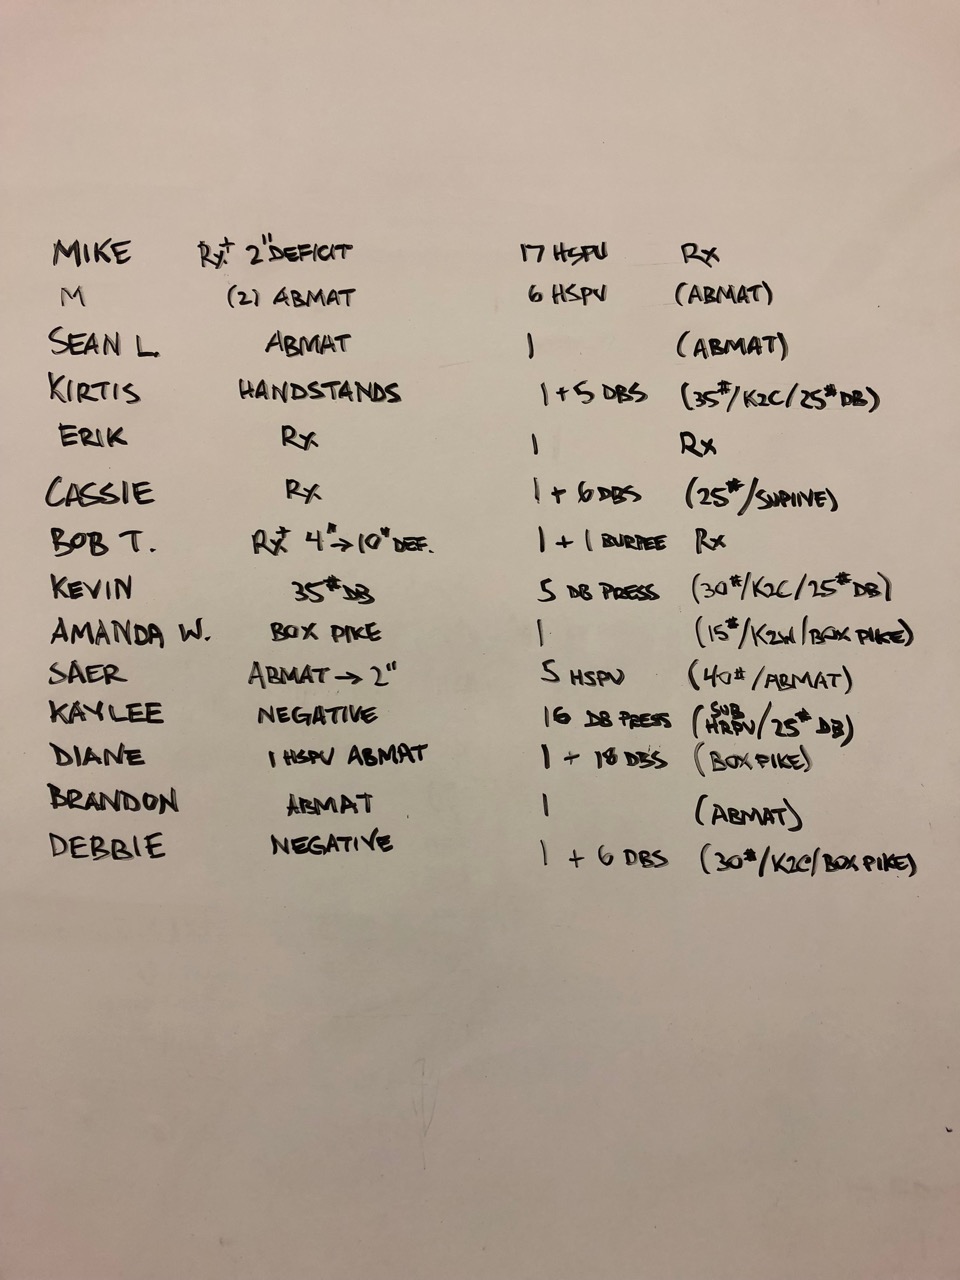 MIKE Rx+ 2" DEFICIT 17 HSPU Rx
M (2) ABMAT 6 HSPU (ABMAT)
SEAN L. ABMAT 1 (ABMAT)
KIRTIS HANDSTANDS 1 + 5 DBS (35#/K2C/25# DB)
ERIK Rx 1 Rx
CASSIE Rx 1 + 6 DBS (25#/SUPINE)
BOB T. Rx+ 4" → 10" DEF. 1 + 1 BURPEE Rx
KEVIN 35# DB 5 DB PRESS (30#/K2C/25# DB)
AMANDA W. BOX PIKE 1 (15#/K2W/BOX PIKE)
SAER ABMAT → 2" 5 HSPU (40#/ABMAT)
KAYLEE NEGATIVE 16 DB PRESS (SUB HRPU/25# DB)
DIANE 1 HSPU ABMAT 1 + 18 DBS (BOX PIKE)
BRANDON ABMAT 1 (ABMAT)
DEBBIE NEGATIVE 1 + 6 DBS (30#/K2C/BOX PIKE)